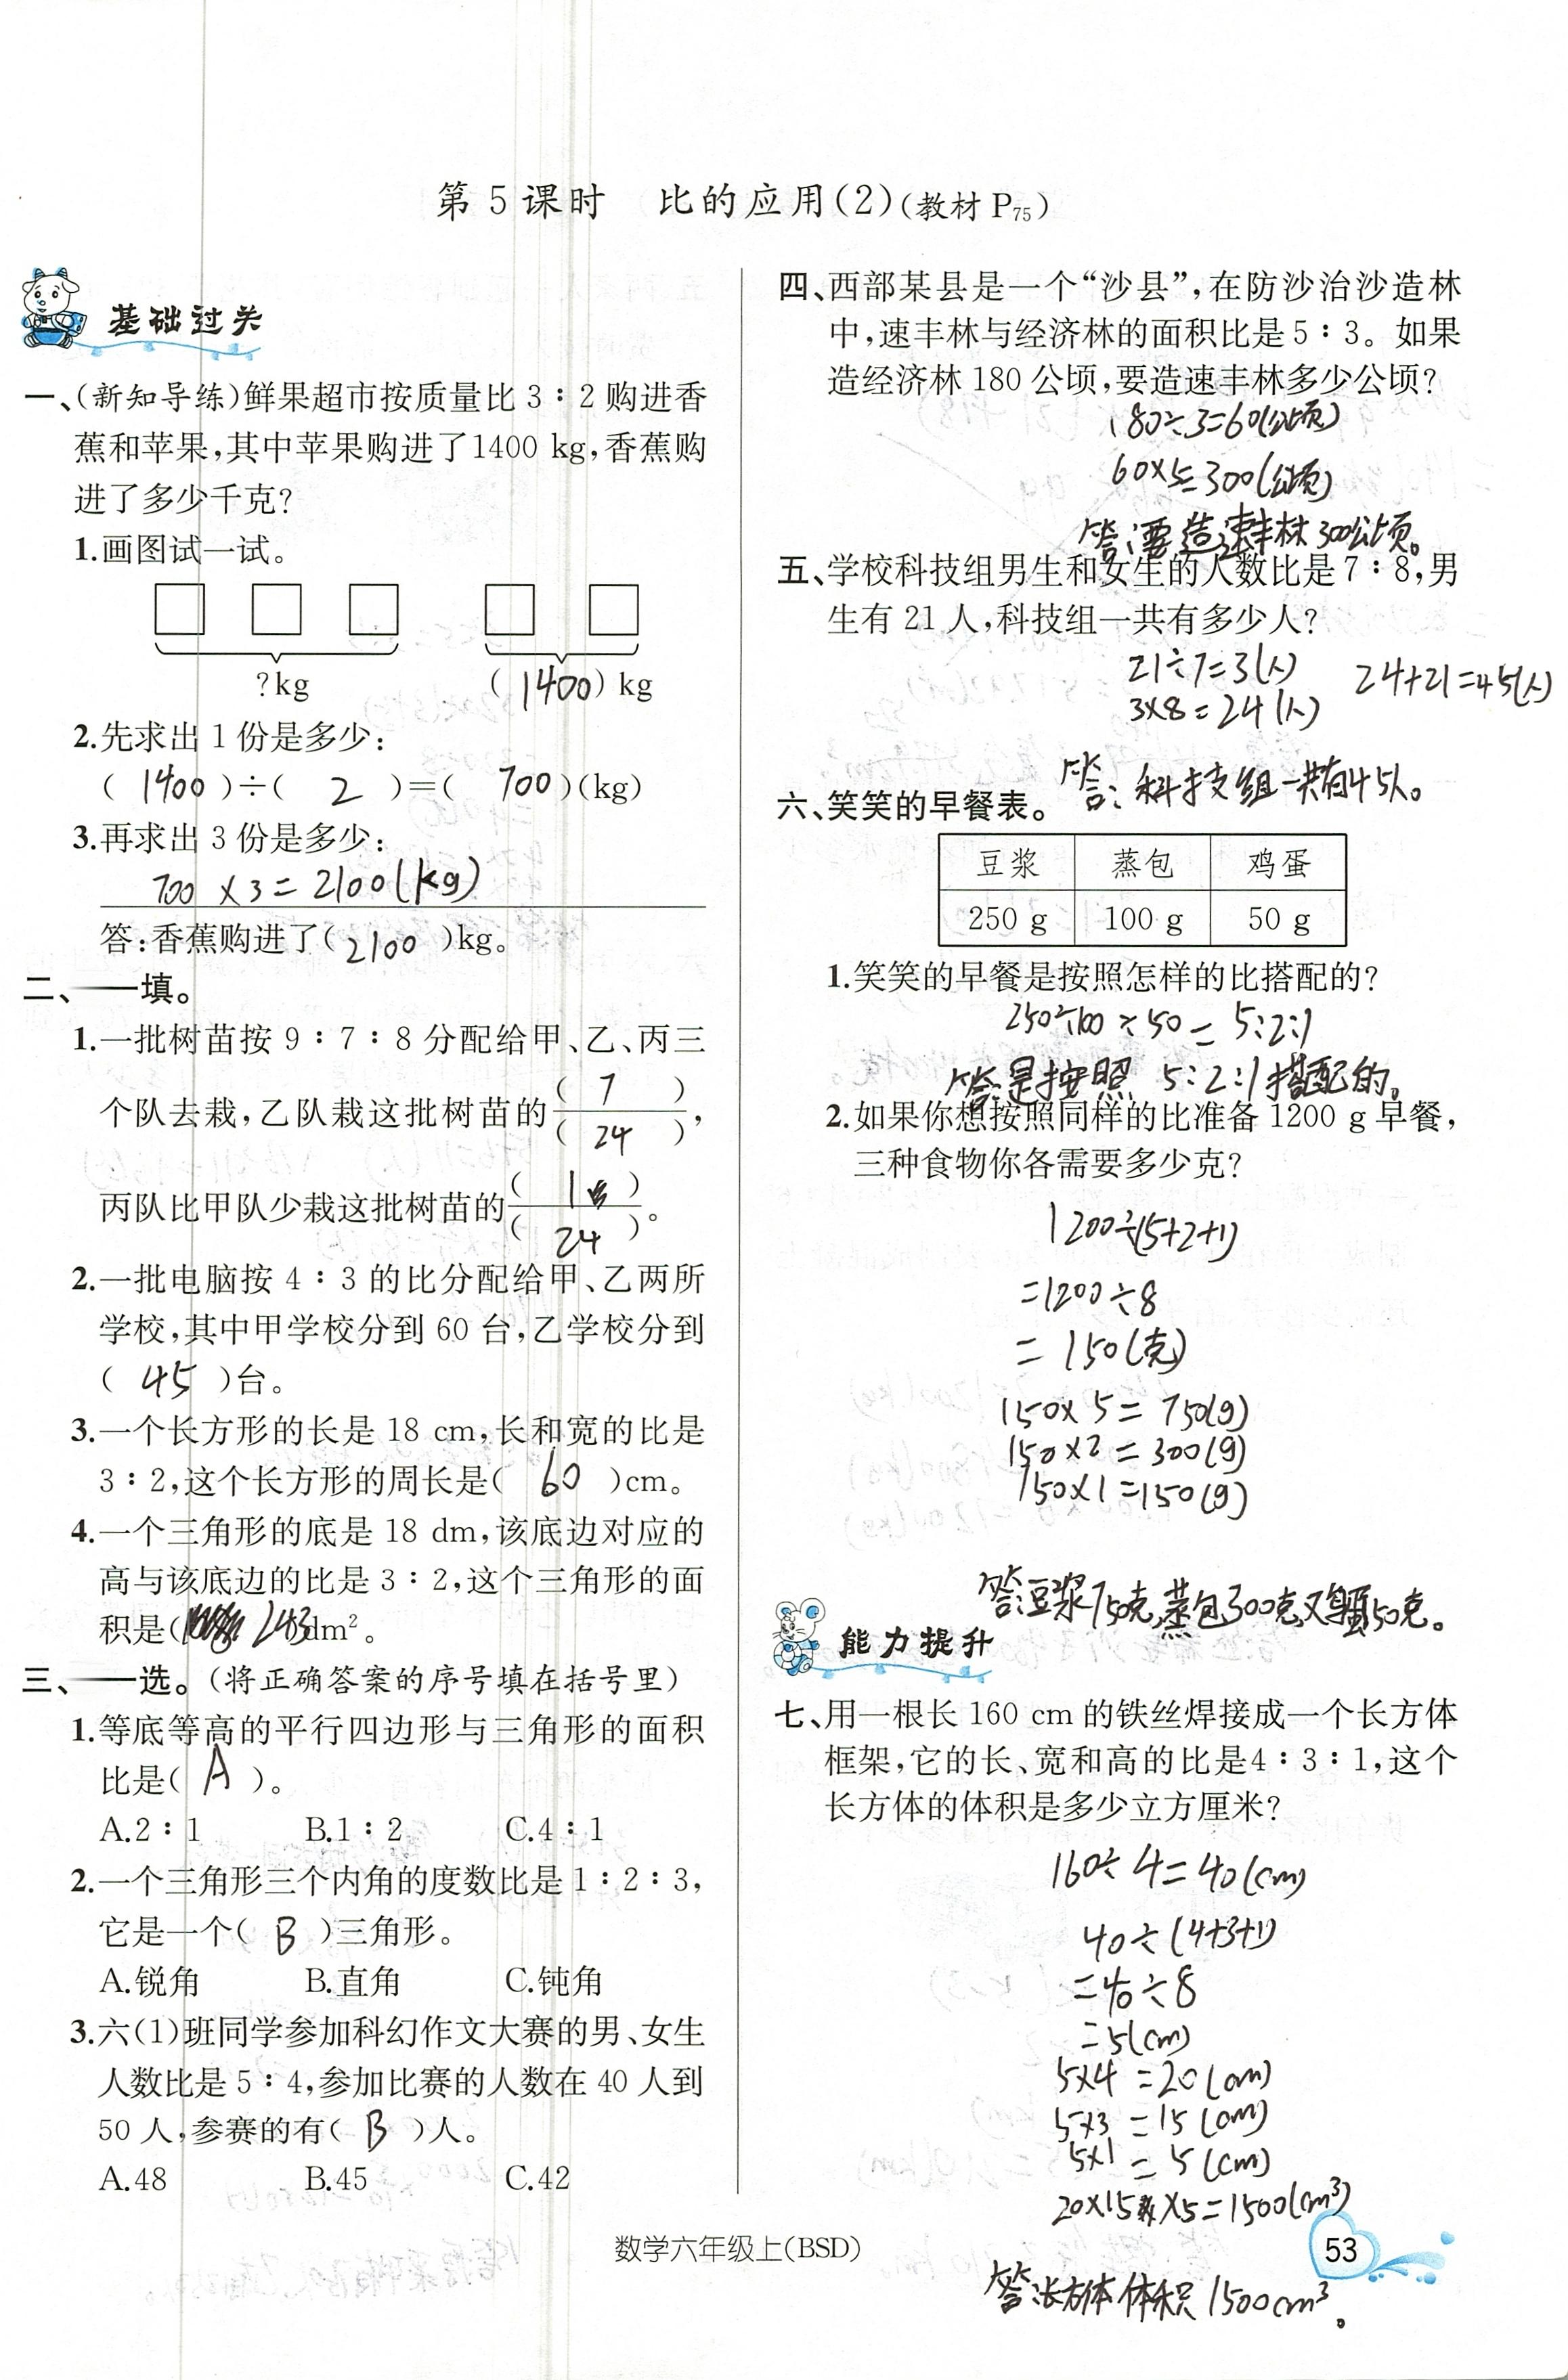 第5课时 比的应用(2)(教材P75)
基础过关
一、(新知导练)鲜果超市按质量比3∶2购进香
蕉和苹果,其中苹果购进了1400 kg,香蕉购
进了多少千克?
1.画图试一试。
?kg (1400)kg
2.先求出1份是多少:
(1400)÷(2)=(700)(kg)
3.再求出3份是多少:
700×3=2100(kg)
答:香蕉购进了(2100)kg。
二、一一填。
1.一批树苗按9∶7∶8分配给甲、乙、丙三
(7)
个队去栽,乙队栽这批树苗的
(24)
,
(1)
丙队比甲队少栽这批树苗的
(24)
。
2.一批电脑按4∶3的比分配给甲、乙两所
学校,其中甲学校分到60台,乙学校分到
(45)台。
3.一个长方形的长是18 cm,长和宽的比是
3∶2,这个长方形的周长是(60)cm。
4.一个三角形的底是18 dm,该底边对应的
高与该底边的比是3∶2,这个三角形的面
积是(243)dm²。
三、一一选。(将正确答案的序号填在括号里)
1.等底等高的平行四边形与三角形的面积
比是(A)。
A.2∶1 B.1∶2 C.4∶1
2.一个三角形三个内角的度数比是1∶2∶3,
它是一个(B)三角形。
A.锐角 B.直角 C.钝角
3.六(1)班同学参加科幻作文大赛的男、女生
人数比是5∶4,参加比赛的人数在40人到
50人,参赛的有(B)人。
A.48 B.45 C.42
四、西部某县是一个“沙县”,在防沙治沙造林
中,速丰林与经济林的面积比是5∶3。如果
造经济林180公顷,要造速丰林多少公顷?
180÷3=60(公顷)
60×5=300(公顷)
答:要造速丰林300公顷。
五、学校科技组男生和女生的人数比是7∶8,男
生有21人,科技组一共有多少人?
21÷7=3(人)
3×8=24(人)
24+21=45(人)
答:科技组一共有45人。
六、笑笑的早餐表。
豆浆 蒸包 鸡蛋
250 g 100 g 50 g
1.笑笑的早餐是按照怎样的比搭配的?
250÷100÷50=5:2:1
答:是按照5:2:1搭配的。
2.如果你想按照同样的比准备1200 g早餐,
三种食物你各需要多少克?
1200÷(5+2+1)
=1200÷8
=150(克)
150×5=750(g)
150×2=300(g)
150×1=150(g)
答:豆浆750克,蒸包300克,又鸡蛋150克。
能力提升
七、用一根长160 cm的铁丝焊接成一个长方体
框架,它的长、宽和高的比是4∶3∶1,这个
长方体的体积是多少立方厘米?
160÷4=40(cm)
40÷(4+3+1)
=40÷8
=5(cm)
5×4=20(cm)
5×3=15(cm)
5×1=5(cm)
20×15×5=1500(cm³)
答:长方体体积1500cm³。
数学六年级上(BSD)
53